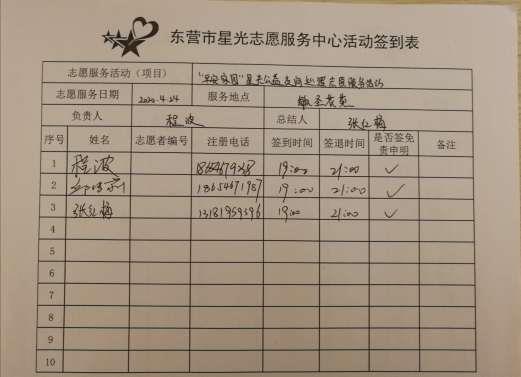 东营市星光志愿服务中心活动签到表
志愿服务活动（项目） "平安家园"星光公益夜间巡逻志愿服务活动
志愿服务日期 2020.4.24 服务地点
负责人 程波 总结人 张红梅
序号 姓名 志愿者编号 注册电话 签到时间 签退时间 是否签免责申明 备注
1 程波 19:00 21:00 ✓
2 18654671987 19:00 21:00 ✓
3 张红梅 13181959596 19:00 21:00 ✓
4
5
6
7
8
9
10